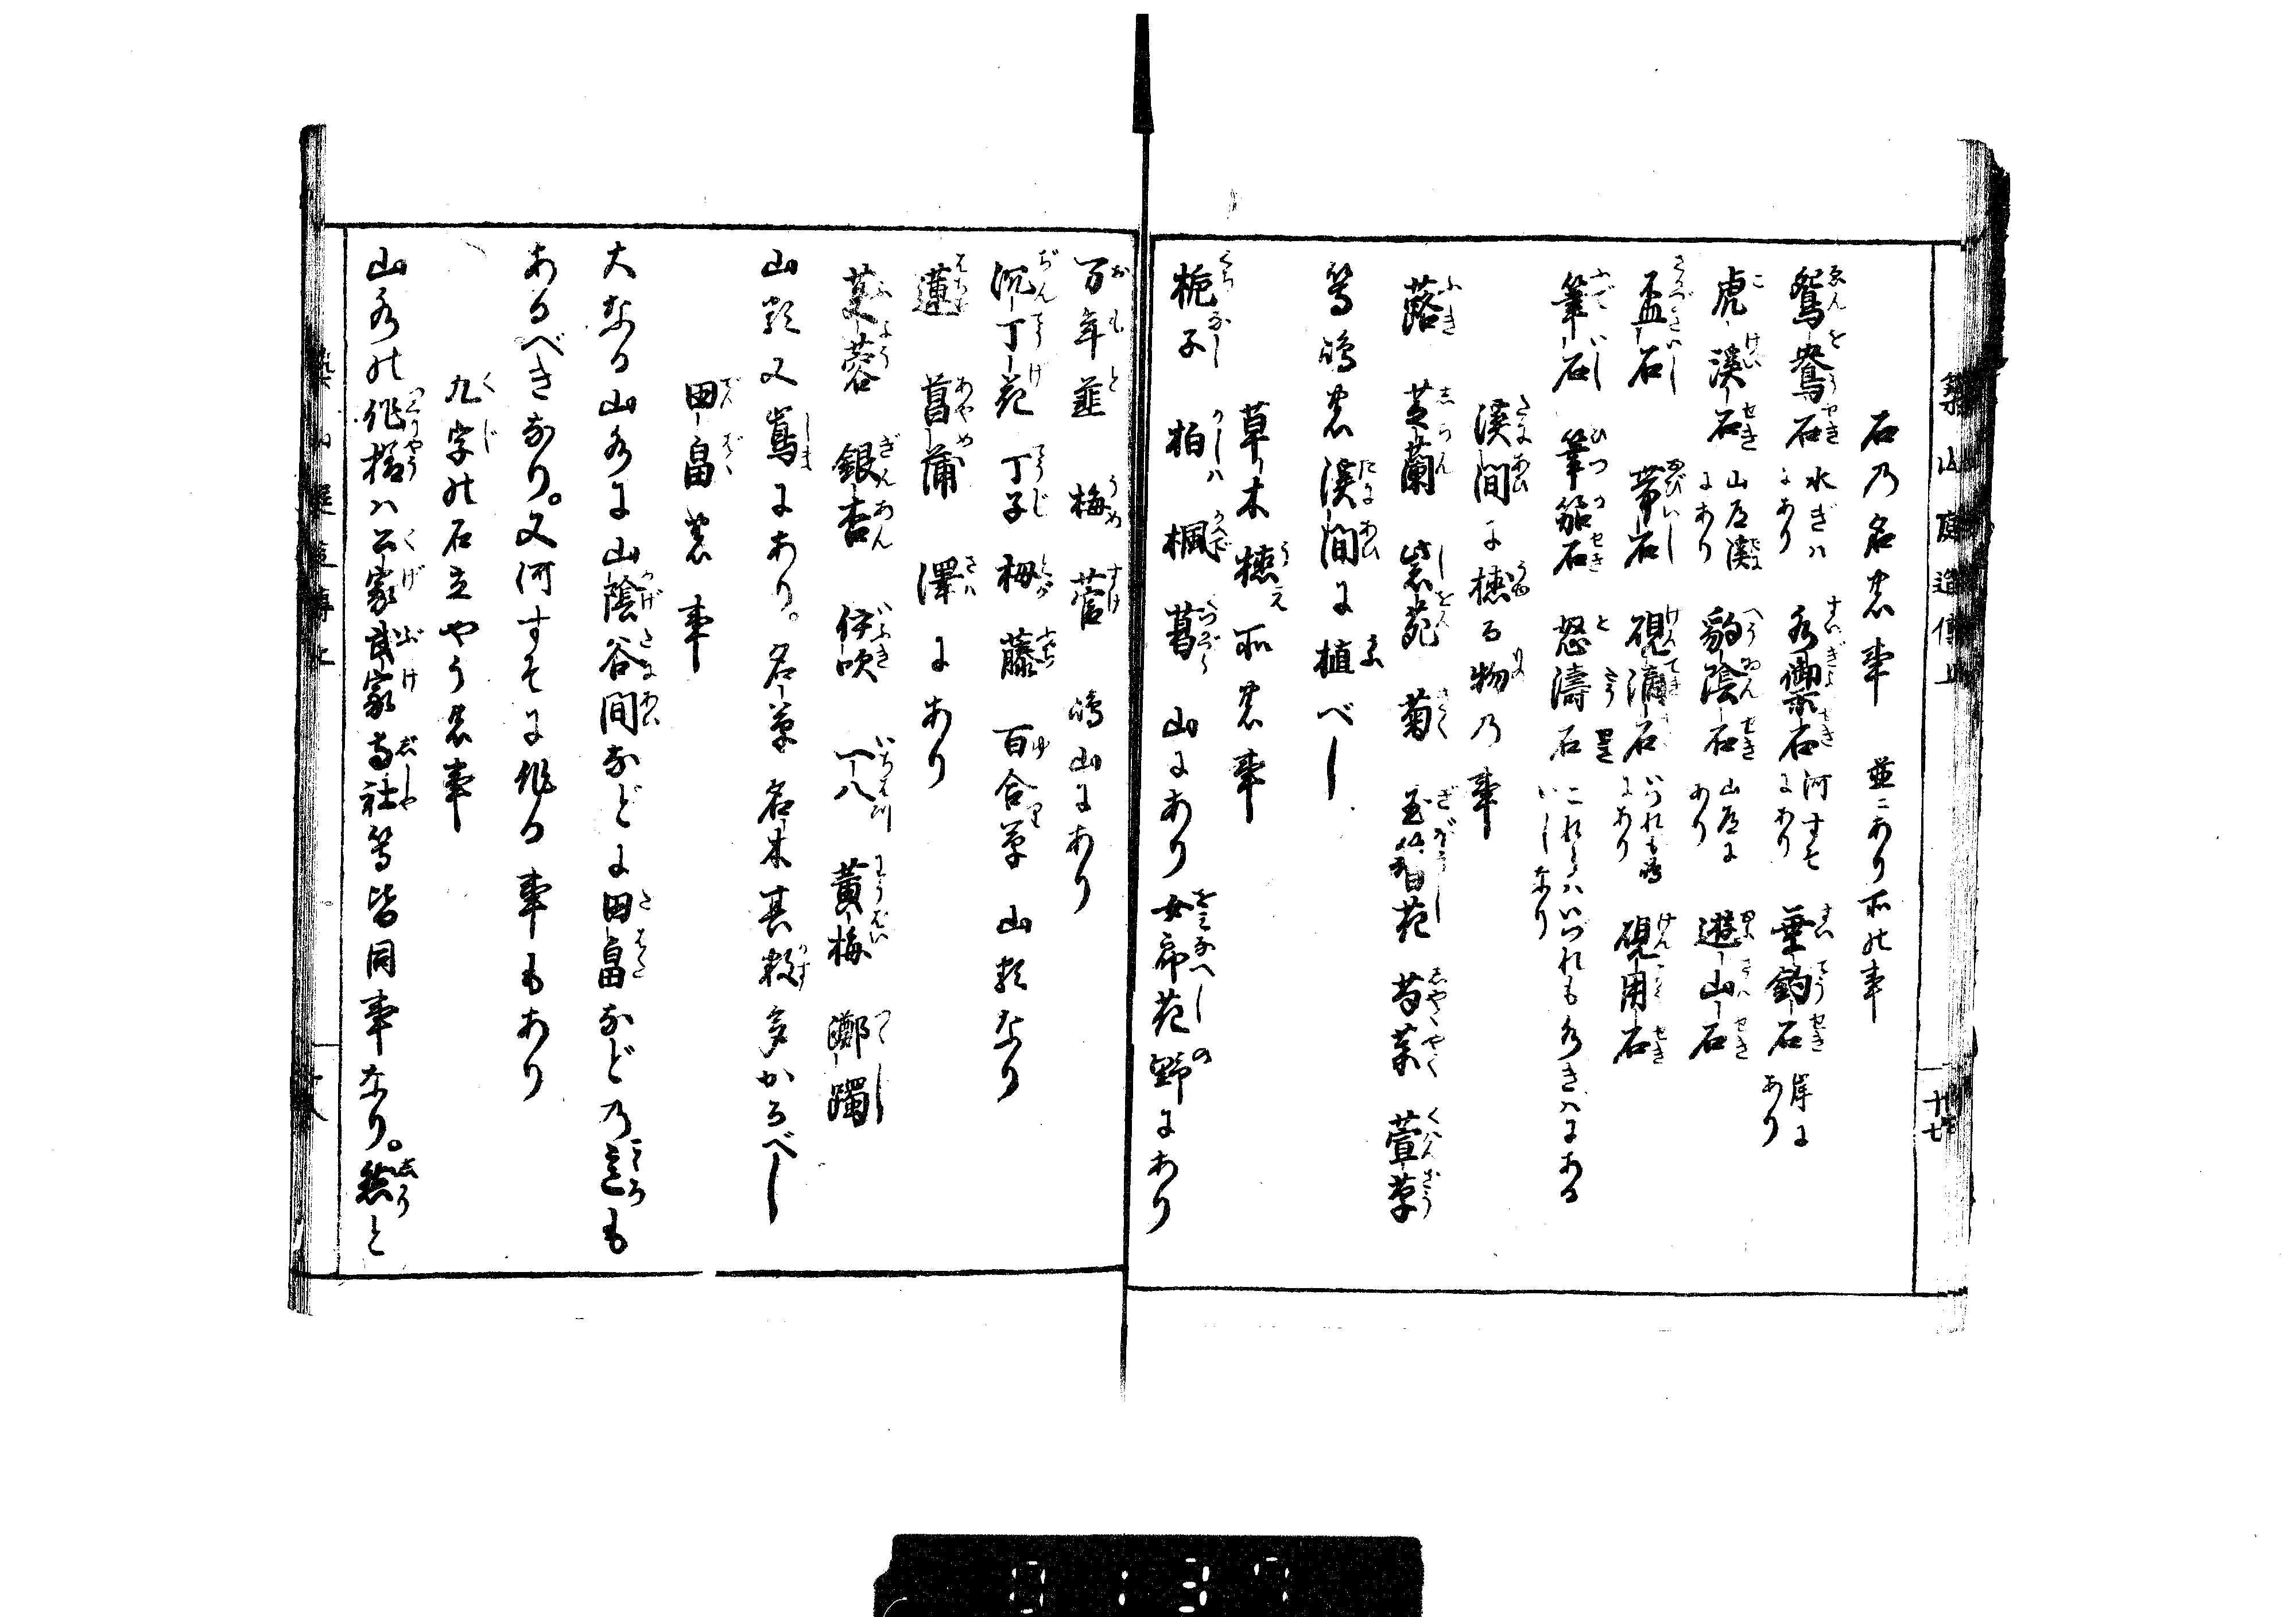 築山庭造傳上
十七
石乃名之事 並ニあり所の事
鴛鴦石 水ぎハにあり 水御築石 河すそにあり 垂釣石 岸にあり
虎溪石 山居溪にあり 豹陰石 山居にあり 遊山石
盃石 帯石 硯滴石 いづれも嶋にあり 硯用石
筆石 筆架石 怒濤石 これらハいづれも水きハにあるいしなり
溪間に樹る物乃事
蕗 芝蘭 紫苑 菊 玉簪花 芍薬 萱草
等嶋之溪間に植べし
草木樹所之事
梔子 柏 楓 葛 山にあり 女郎花 野にあり
万年韮 梅 菅 嶋山にあり
沉丁花 丁子 栂 藤 百合草 山類なり
蓮 菖蒲 澤にあり
芙蓉 銀杏 伊吹 一八 黄梅 躑躅
山類又嶌にあり。名草名木其數多かるべし
田畠之事
大なる山水に山陰谷間などに田畠などの意も
あるべきなり。又河すそに作る事もあり
九字の石立やう之事
山水の作様ハ公家武家寺社等皆同事なり。然と